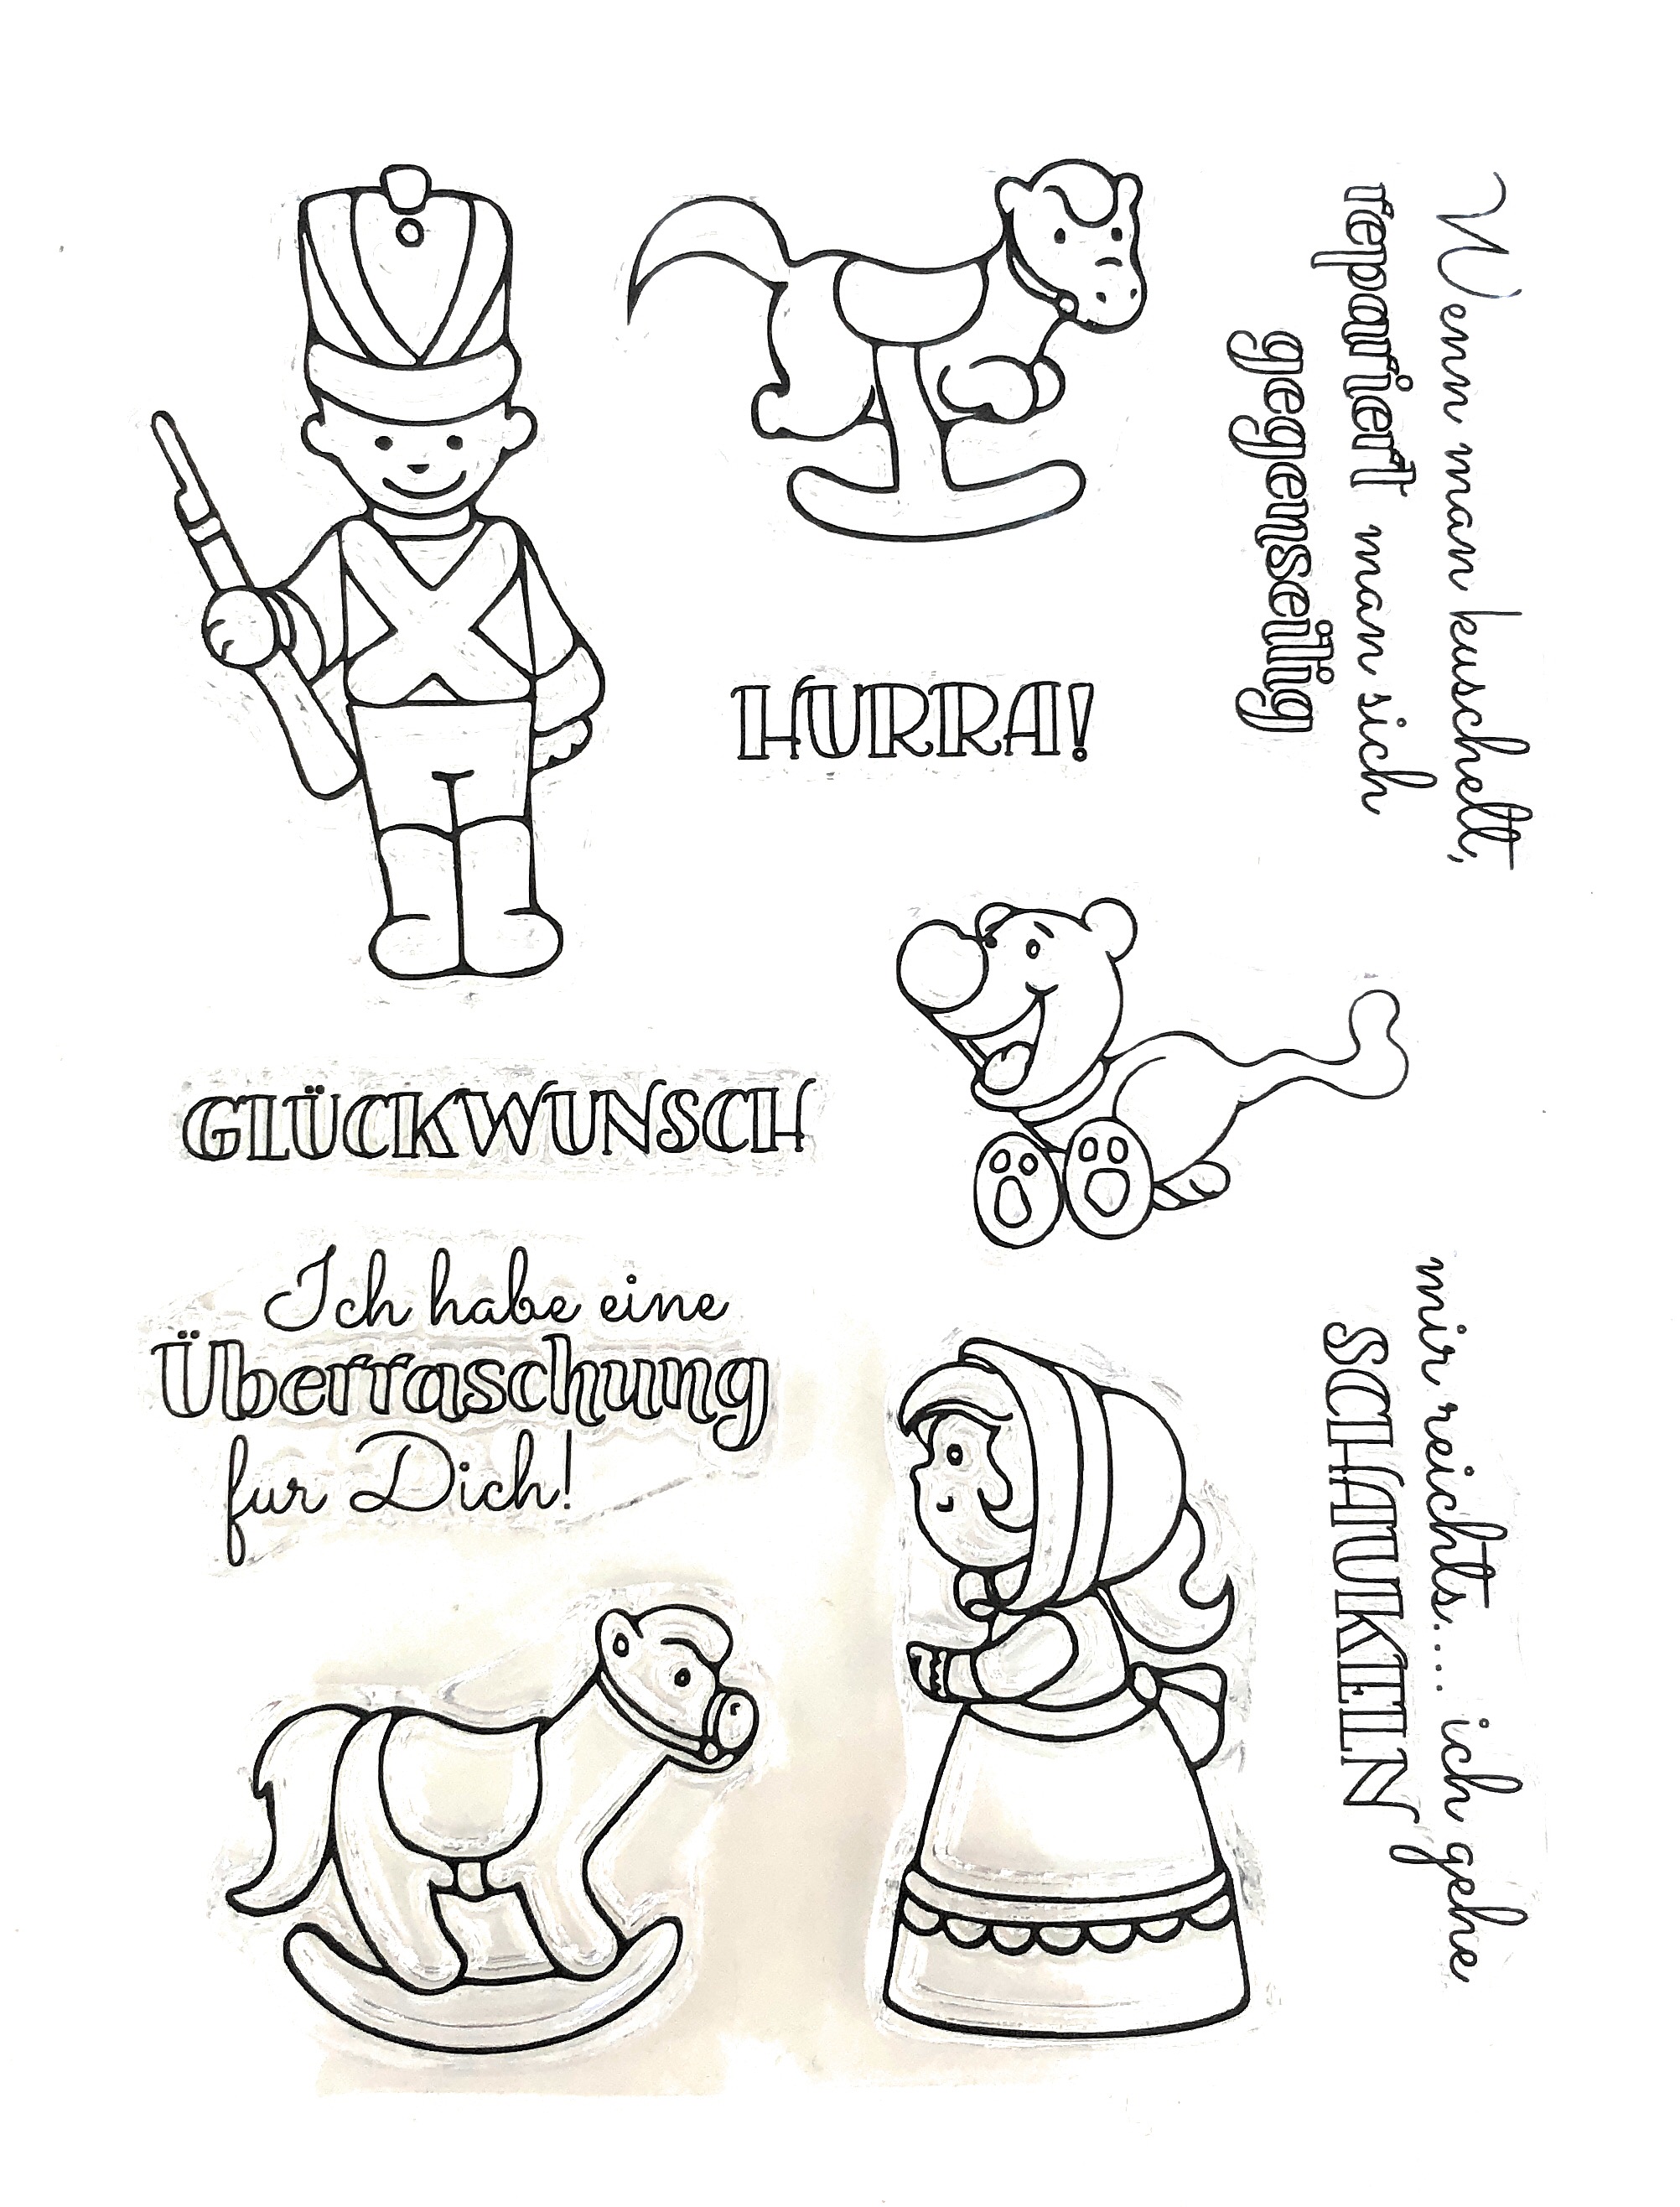 Wenn man kuschelt,
repariert man sich
gegenseitig
HURRA!
GLÜCKWUNSCH
Ich habe eine
Überraschung
fur Dich!
mir reichts.... ich gehe
SCHAUKELN